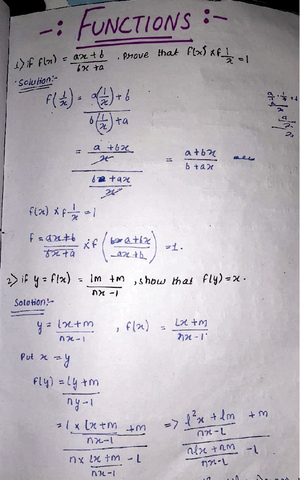 -: FUNCTIONS :-
1) if f(x) = ax + b / bx + a , prove that f(x) x f 1/x = 1
Solution:-
f(1/x) = a(1/x) + b / b(1/x) + a
= a + bx / x / b + ax / x = a + bx / b + ax
f(x) x f 1/x = 1
f = ax + b / bx + a x f (a + bx / ax + b) = 1.
2) if y = f(x) = lm + m / nx - 1 , show that f(y) = x.
Solution:-
y = lx + m / nx - 1 , f(x) = lx + m / nx - 1
Put x = y
f(y) = ly + m / ny - 1
= l x lx + m / nx - 1 + m / n x lx + m / nx - 1 - 1 => l²x + lm / nx - 1 + m / nlx + nm / nx - 1 - 1